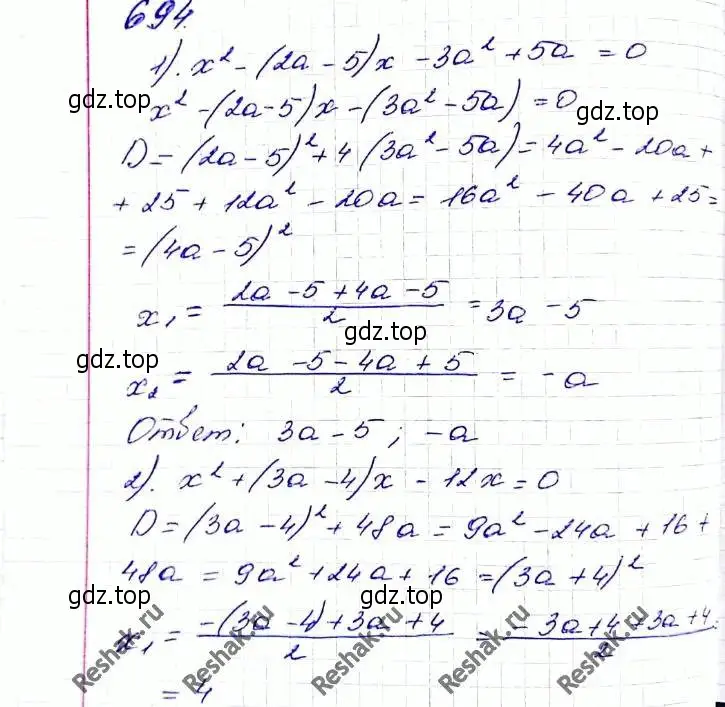 694.
1). x² - (2a - 5)x - 3a² + 5a = 0
gdz.top
x² - (2a - 5)x - (3a² - 5a) = 0
gdz.top
D = (2a - 5)² + 4 (3a² - 5a) = 4a² - 20a +
+ 25 + 12a² - 20a = 16a² - 40a + 25 =
= (4a - 5)²
x₁ = \frac{2a - 5 + 4a - 5}{2} = 3a - 5
gdz.top
gdz.top
x₂ = \frac{2a - 5 - 4a + 5}{2} = -a
Ответ: 3a - 5 ; -a
2). x² + (3a - 4)x - 12x = 0
D = (3a - 4)² + 48a = 9a² - 24a + 16 +
48a = 9a² + 24a + 16 = (3a + 4)²
gdz.top
gdz.top
x₁ = \frac{-(3a - 4) + 3a + 4}{2} = \frac{-3a + 4 + 3a + 4}{2} =
= 4
Reshak.ru
Reshak.ru
Reshak.ru
Reshak.ru